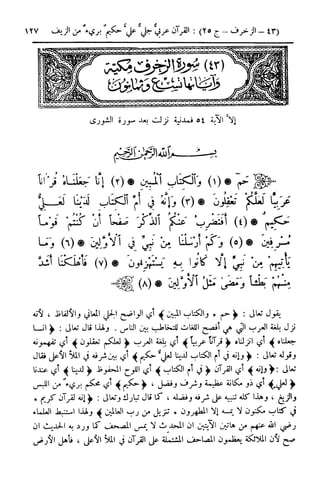 (٤٣ – الزخرف – ج ٢٥) : القرآن عربيٌّ جليٌّ عليٌّ حكيمٌ بريءٌ من الزيف ١٢٧
(٤٣) سورة الزخرف مكية
وآياتها تسع وثمانون
إلا الآية ٥٤ فمدنية نزلت بعد سورة الشورى
بسم الله الرحمن الرحيم
حم (١) وَالْكِتَابِ الْمُبِينِ (٢) إِنَّا جَعَلْنَاهُ قُرْآناً
عَرَبِيًّا لَعَلَّكُمْ تَعْقِلُونَ (٣) وَإِنَّهُ فِي أُمِّ الْكِتَابِ لَدَيْنَا لَعَلِيٌّ
حَكِيمٌ (٤) أَفَنَضْرِبُ عَنْكُمُ الذِّكْرَ صَفْحاً أَنْ كُنْتُمْ قَوْماً
مُسْرِفِينَ (٥) وَكَمْ أَرْسَلْنَا مِنْ نَبِيٍّ فِي الْأَوَّلِينَ (٦) وَمَا
يَأْتِيهِمْ مِنْ نَبِيٍّ إِلَّا كَانُوا بِهِ يَسْتَهْزِءُونَ (٧) فَأَهْلَكْنَا أَشَدَّ
مِنْهُمْ بَطْشاً وَمَضَىٰ مَثَلُ الْأَوَّلِينَ (٨)
يقول تعالى : ﴿ حم ٭ والكتاب المبين ﴾ أي الواضح الجلي المعاني والألفاظ ، لأنه
نزل بلغة العرب التي هي أفصح اللغات للتخاطب بين الناس . ولهذا قال تعالى : ﴿ إنا
جعلناه ﴾ أي انزلناه ﴿ قرآناً عربياً ﴾ أي بلغة العرب ﴿ لعلكم تعقلون ﴾ أي تفهمونه
وقوله تعالى : ﴿ وإنه في أم الكتاب لدينا لعليٌّ حكيم ﴾ أي بين شرفه في الملأ الأعلى فقال
تعالى : ﴿ وإنه ﴾ أي القرآن ﴿ في أم الكتاب ﴾ أي اللوح المحفوظ ﴿ لدينا ﴾ أي عندنا
﴿ لعليٌّ ﴾ أي ذو مكانة عظيمة وشرف وفضل ، ﴿ حكيم ﴾ أي محكم بريء من اللبس
والزيغ ، وهذا كله تنبيه على شرفه وفضله ، كما قال تبارك وتعالى : ﴿ إنه لقرآن كريم ٭
في كتاب مكنون لا يمسه إلا المطهرون ٭ تنزيل من رب العالمين ﴾ ولهذا استنبط العلماء
رضي الله عنهم من هاتين الآيتين ان المحدث لا يمس المصحف كما ورد به الحديث ان
صح لأن الملائكة يعظمون المصاحف المشتملة على القرآن في الملأ الأعلى ، فأهل الأرض